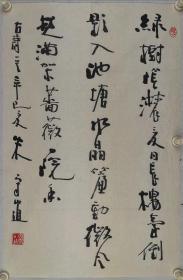 綠樹陰濃夏日長樓臺倒
影入池塘水晶簾動微風
起滿架薔薇一院香
古詩一首辛巳夏朱守道